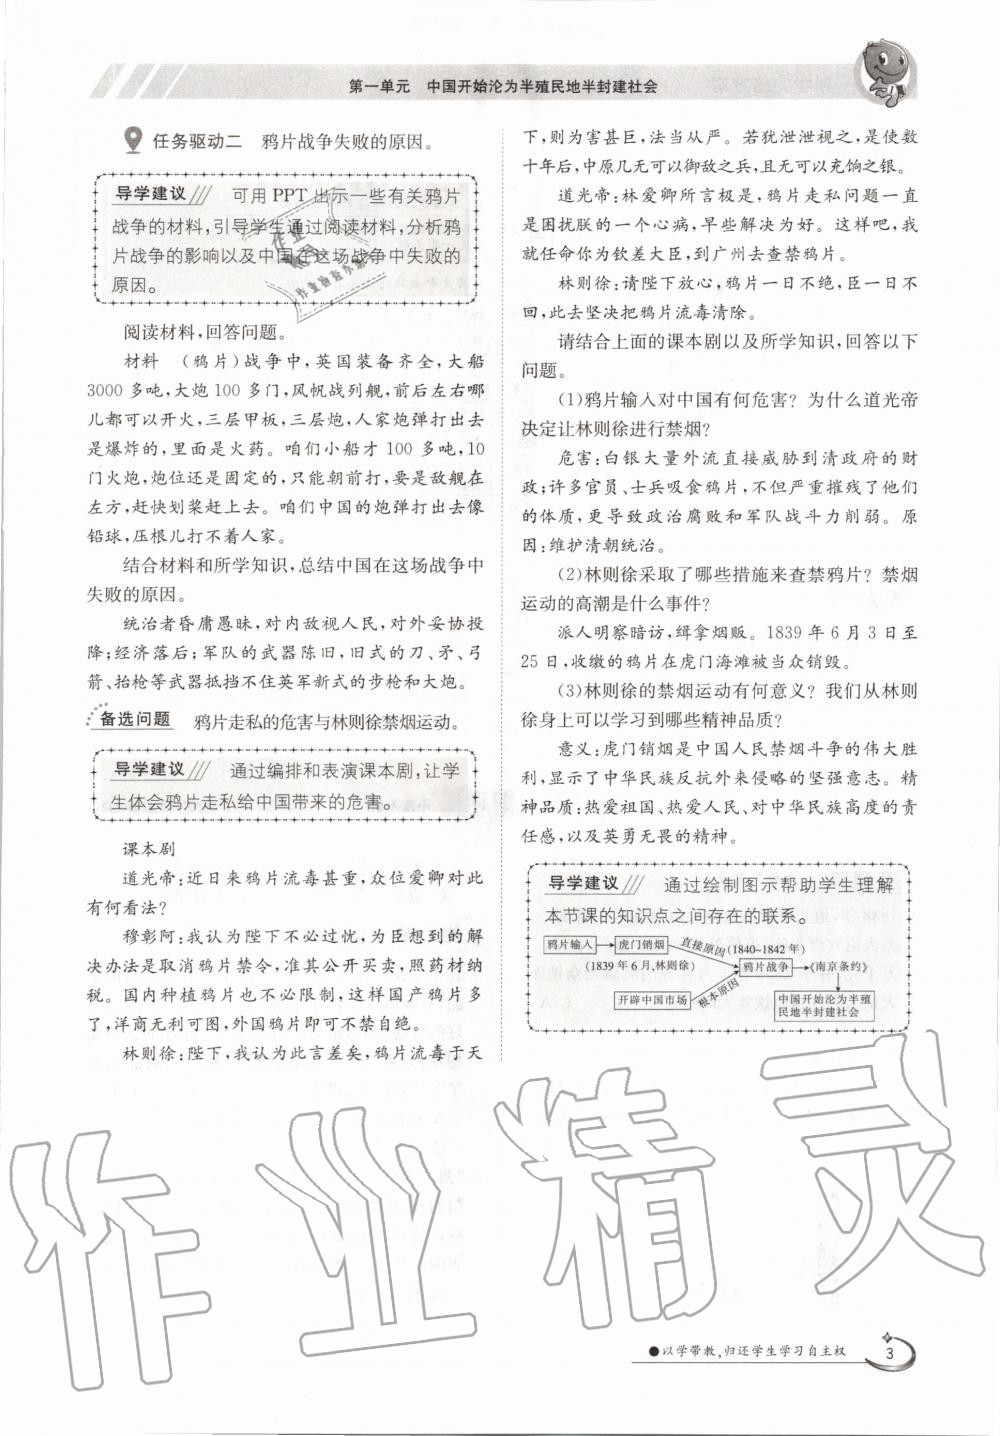 第一单元 中国开始沦为半殖民地半封建社会
任务驱动二 鸦片战争失败的原因。
导学建议 可用PPT出示一些有关鸦片
战争的材料,引导学生通过阅读材料,分析鸦
片战争的影响以及中国在这场战争中失败的
原因。
阅读材料,回答问题。
材料 (鸦片)战争中,英国装备齐全,大船
3000多吨,大炮100多门,风帆战列舰,前后左右哪
儿都可以开火,三层甲板,三层炮,人家炮弹打出去
是爆炸的,里面是火药。咱们小船才100多吨,10
门火炮,炮位还是固定的,只能朝前打,要是敌舰在
左方,赶快划桨赶上去。咱们中国的炮弹打出去像
铅球,压根儿打不着人家。
结合材料和所学知识,总结中国在这场战争中
失败的原因。
统治者昏庸愚昧,对内敌视人民,对外妥协投
降;经济落后;军队的武器陈旧,旧式的刀、矛、弓
箭、抬枪等武器抵挡不住英军新式的步枪和大炮。
备选问题 鸦片走私的危害与林则徐禁烟运动。
导学建议 通过编排和表演课本剧,让学
生体会鸦片走私给中国带来的危害。
课本剧
道光帝:近日来鸦片流毒甚重,众位爱卿对此
有何看法?
穆彰阿:我认为陛下不必过忧,为臣想到的解
决办法是取消鸦片禁令,准其公开买卖,照药材纳
税。国内种植鸦片也不必限制,这样国产鸦片多
了,洋商无利可图,外国鸦片即可不禁自绝。
林则徐:陛下,我认为此言差矣,鸦片流毒于天
下,则为害甚巨,法当从严。若犹泄泄视之,是使数
十年后,中原几无可以御敌之兵,且无可以充饷之银。
道光帝:林爱卿所言极是,鸦片走私问题一直
是困扰朕的一个心病,早些解决为好。这样吧,我
就任命你为钦差大臣,到广州去查禁鸦片。
林则徐:请陛下放心,鸦片一日不绝,臣一日不
回,此去坚决把鸦片流毒清除。
请结合上面的课本剧以及所学知识,回答以下
问题。
(1)鸦片输入对中国有何危害?为什么道光帝
决定让林则徐进行禁烟?
危害:白银大量外流直接威胁到清政府的财
政;许多官员、士兵吸食鸦片,不但严重摧残了他们
的体质,更导致政治腐败和军队战斗力削弱。原
因:维护清朝统治。
(2)林则徐采取了哪些措施来查禁鸦片?禁烟
运动的高潮是什么事件?
派人明察暗访,缉拿烟贩。1839年6月3日至
25日,收缴的鸦片在虎门海滩被当众销毁。
(3)林则徐的禁烟运动有何意义?我们从林则
徐身上可以学习到哪些精神品质?
意义:虎门销烟是中国人民禁烟斗争的伟大胜
利,显示了中华民族反抗外来侵略的坚强意志。精
神品质:热爱祖国、热爱人民、对中华民族高度的责
任感,以及英勇无畏的精神。
导学建议 通过绘制图示帮助学生理解
本节课的知识点之间存在的联系。
鸦片输入 虎门销烟 直接原因 (1840-1842年)
(1839年6月,林则徐) 鸦片战争 《南京条约》
开辟中国市场 根本原因 中国开始沦为半殖
民地半封建社会
作业精灵
●以学带教,归还学生学习自主权 3